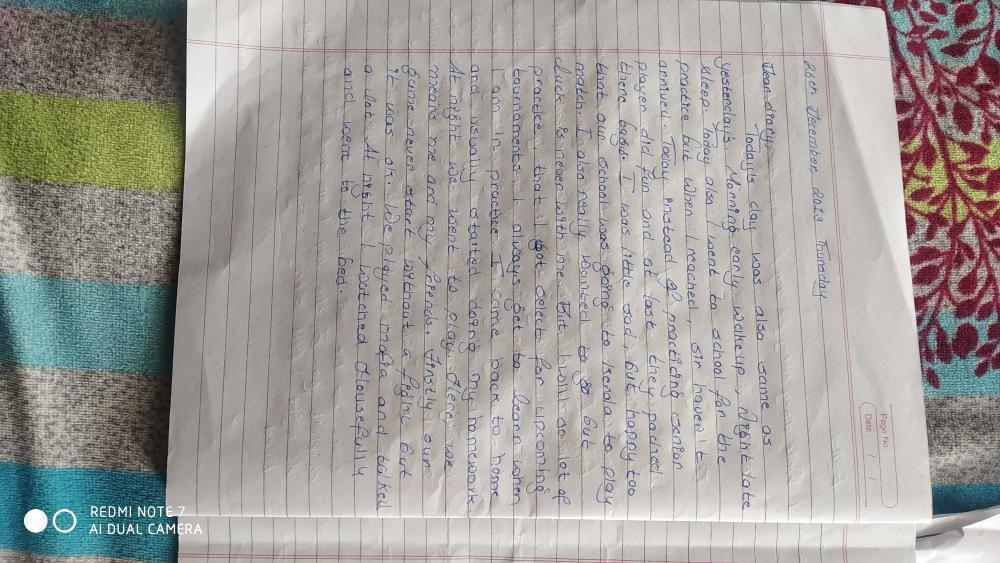 Page No.
Date / /
26th December 2019 Thursday
Dear diary,
Today's day was also same as
yesterday's. Morning early wakeup, Night late
sleep. Today also I went to school for the
practice but when I reached, sir haven't
arrived. Today instead of practicing senior
player did fun and at last they packed
there bags. I was little sad, but happy too
that our school was going to Kerala to play
match. I also really wanted to go but
luck is never with me. But I will do lot of
practice that I got select for upcoming
tournaments. I always get to learn when
I am in practice. I came back to home
and usually started doing my homework.
At night we went to play. Here, we
means me and my friends. Firstly our
game never start without a fight but
it was ok. We played mafia and talked
a lot. At night I watched Housefull4
and went to the bed.
REDMI NOTE 7
AI DUAL CAMERA